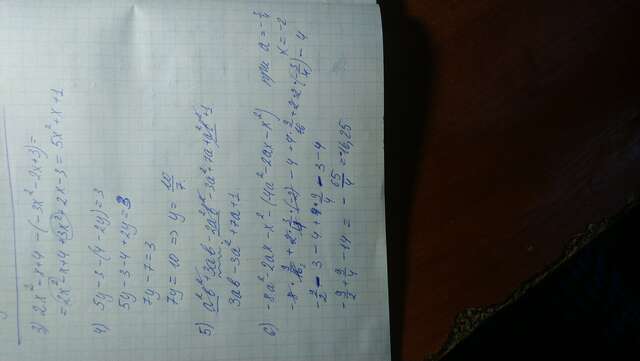 3) 2x² - x + 4 - (-3x² - 2x + 3) =
= 2x² - x + 4 + 3x² + 2x - 3 = 5x² + x + 1
4) 5y - 3 - (4 - 2y) = 3
5y - 3 - 4 + 2y = 3
7y - 7 = 3
7y = 10 => y = 10/7
5)
3ab - 3a² + 7a + 1
6) -8a² - 2ax - x² - (4a² - 2ax - x²) при a = -3/4
x = -2
-9/2 - 3 - 4 + 9/4 - 3 - 4
-9/2 + 9/4 - 14 = -65/4 = -16,25